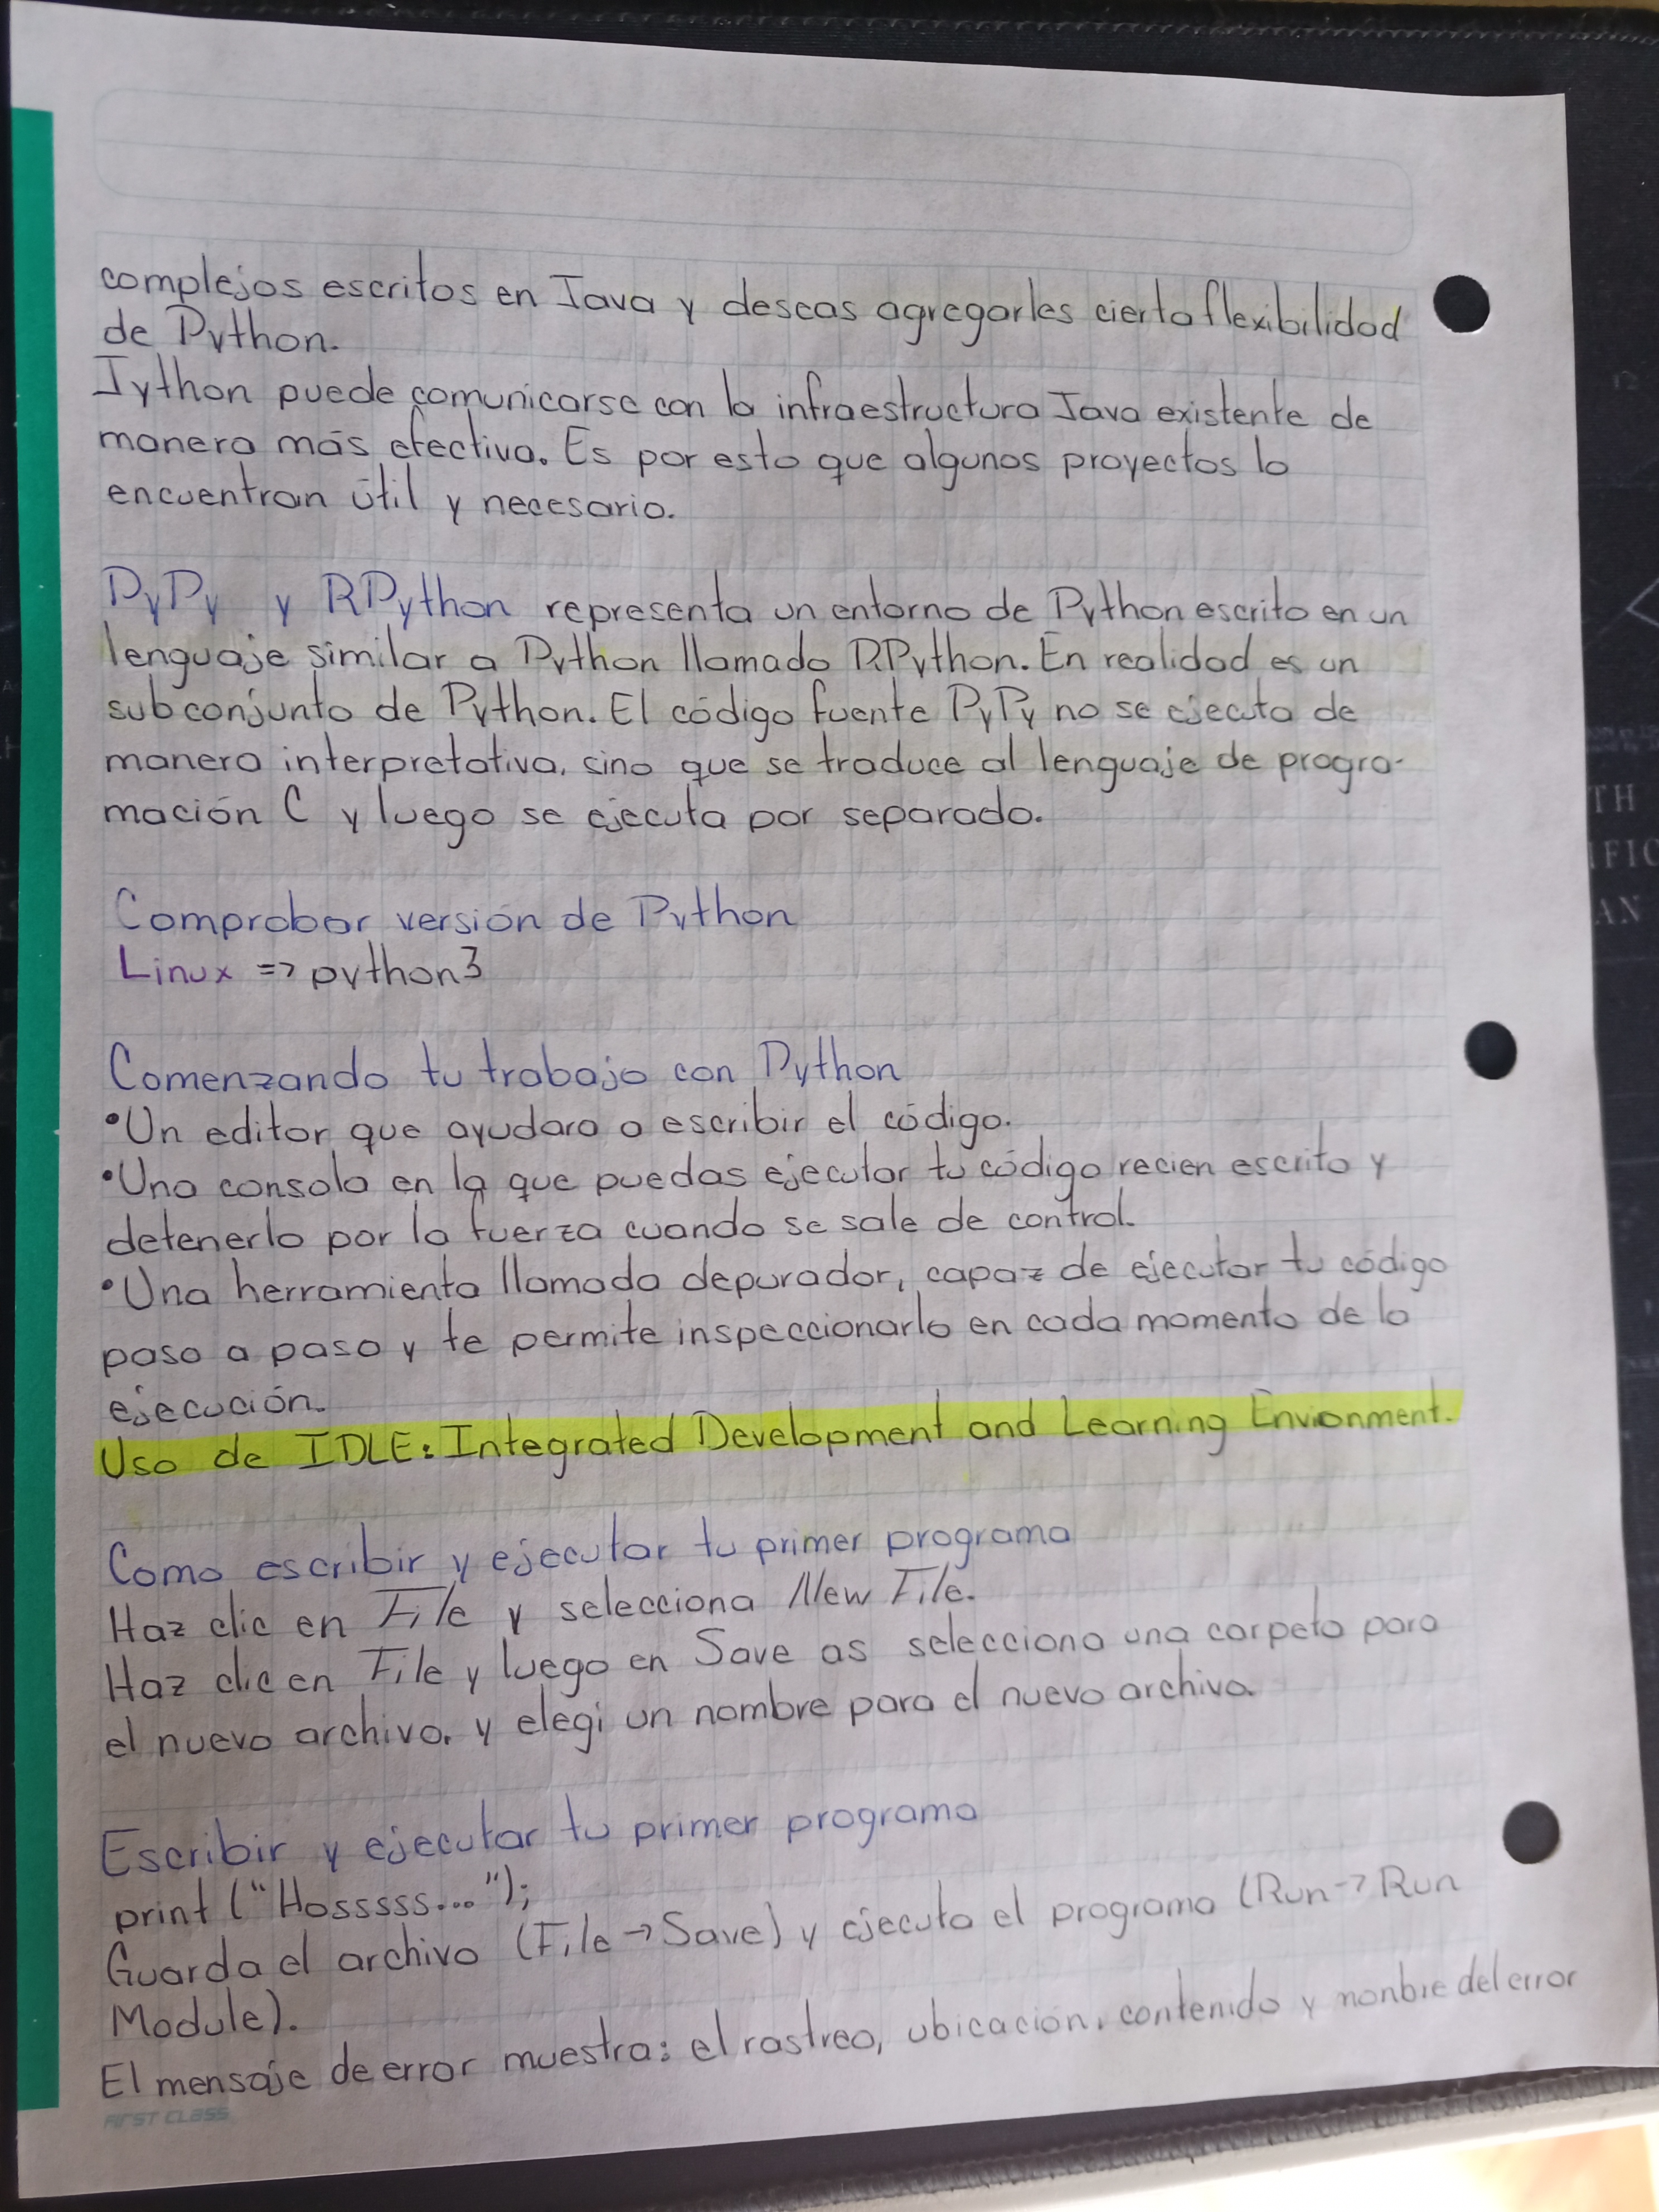 complejos escritos en Java y deseas agregarles cierta flexibilidad
de Python.
Jython puede comunicarse con la infraestructura Java existente de
manera más efectiva. Es por esto que algunos proyectos lo
encuentran útil y necesario.
PyPy y RPython representa un entorno de Python escrito en un
lenguaje similar a Python llamado RPython. En realidad es un
subconjunto de Python. El código fuente PyPy no se ejecuta de
manera interpretativa, sino que se traduce al lenguaje de progra-
mación C y luego se ejecuta por separado.
Comprobar versión de Python
Linux => python3
Comenzando tu trabajo con Python
•Un editor que ayudara a escribir el código.
•Una consola en la que puedas ejecutar tu código recien escrito y
detenerlo por la fuerza cuando se sale de control.
•Una herramienta llamada depurador, capaz de ejecutar tu código
paso a paso y te permite inspeccionarlo en cada momento de la
ejecución.
Uso de IDLE: Integrated Development and Learning Envionment.
Como escribir y ejecutar tu primer programa
Haz clic en File y selecciona New File.
Haz clic en File y luego en Save as selecciona una carpeta para
el nuevo archivo, y elegi un nombre para el nuevo archivo.
Escribir y ejecutar tu primer programa
print ("Hosssss...");
Guarda el archivo (File → Save) y ejecuta el programa (Run → Run
Module).
El mensaje de error muestra: el rastreo, ubicación, contenido y nonbre del error
FIRST CLASS
12
TH
IFIC
AN